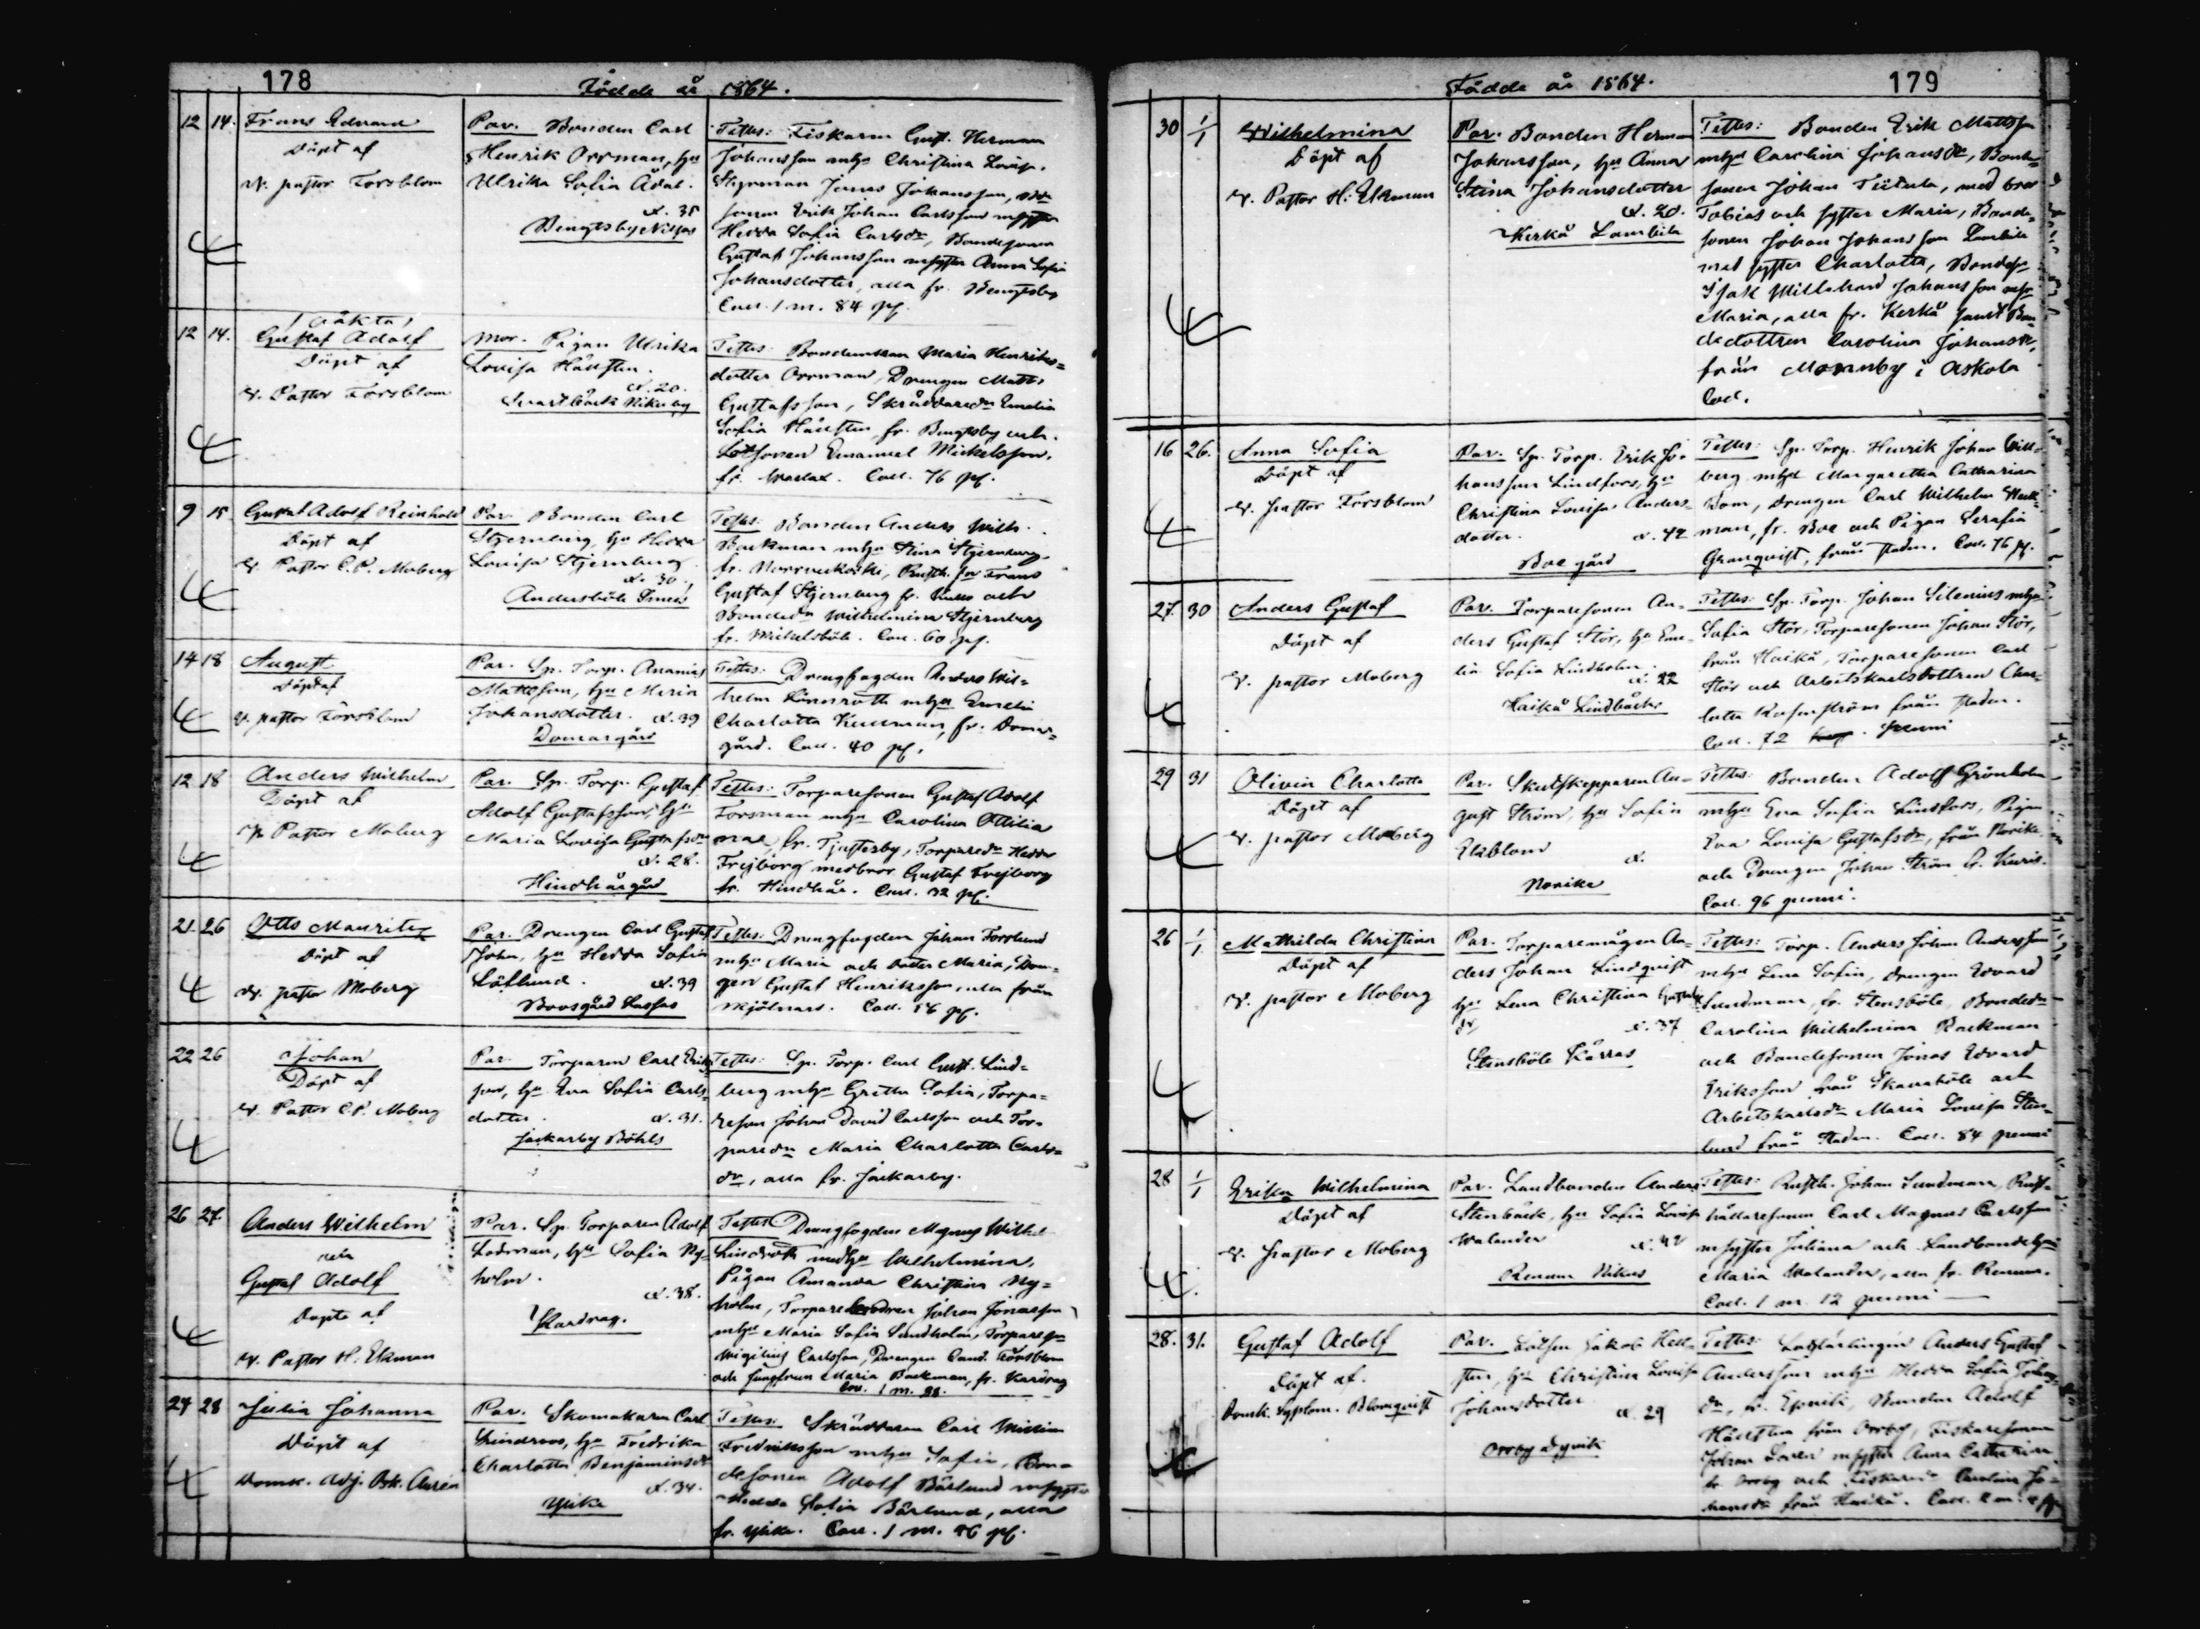 178
Födde år 1864.
12 14. Frans Edvard
Döpt af
v. pastor Forsblom
Par. Bonden Carl
Henrik Orrman, hu
Ulrika Sofia Ådal.
Bengtsby Nissas
Testes: Fiskaren Gust. Herman
Johansson mhu Christina Lovisa,
Styrman Jonas Johansson,
sonen Erik Johan Carlsson
Hedda Sofia Carlsdr, Bondesonen
Gustaf Johansson msyster Anna Sofia
Johansdotter, alla fr. Bengtsby
Coll. 1 m. 84 pf.
12 14. (oäkta)
Gustaf Adolf
Döpt af
v. Pastor Forsblom
Mor. Pigan Ulrika
Lovisa Hällsten.
æ. 20.
Svartbäck Nikuby
Testes: Bondeenkan Maria Henriks-
dotter Orrman, Drengen Matts
Gustafsson, Skräddaredr Emelia
Sofia Hällsten fr. Bengtsby och
Lotssonen Emanuel Mickelsson,
fr. Warlax. Coll. 76 pf.
9 15 Gustaf Adolf Reinhold
Döpt af
v. Pastor C.P. Moberg
Par. Bonden Carl
Stjernberg, hu Hedda
Lovisa Stjernberg
æ. 30.
Andersböle
Testes: Bonden Anders Wilh.
Backman mhu Stina Stjernberg
fr. Norrveckoski, Frans
Gustaf Stjernberg fr. och
Bondedr Wilhelmina Stjernberg
fr. Mickelsböle. Coll. 60 pf.
14 18 August
Döpt af
v. pastor Forsblom
Par. Sp. Torp. Ananias
Mattsson, hu Maria
Johansdotter. æ. 39
Domargård
Testes: Drengfogden Anders Wil-
helm Lönnroth mhu Emelie
Charlotta Kullman, fr. Domar-
gård. Coll. 40 pf.
12 18 Anders Wilhelm
Döpt af
v. Pastor Moberg
Par. Sp. Torp. Gustaf
Adolf Gustafsson, hu
Maria Lovisa Gustafsdr
æ. 28.
Hindhårgård
Testes: Torparesonen Gustaf Adolf
Forsman mhu Carolina Ottilia
fr. Tjusterby, Torparedr Hedda
Frejborg med bror Gustaf Frejborg
fr. Hindhår. Coll. 32 pf.
21. 26 Otto Mauritz
Döpt af
v. pastor Moberg
Par. Drengen Carl Gustaf
John, hu Hedda Sofia
Löflund. æ. 39
Boosgård Lassas
Testes: Drengfogden Johan Forslund
mhu Maria och dotter Maria, Dren-
gen Gustaf Henriksson, alla från
Mjölnars. Coll. 56 pf.
22 26 Johan
Döpt af
v. Pastor C.P. Moberg
Par. Torparen Carl Eriks-
son, hu Eva Sofia Carls-
dotter. æ. 31.
Jackarby Böhls
Testes: Sp. Torp. Carl Gust. Lind-
berg mhu Gretha Sofia, Torpa-
reson Johan David Carlsson och Tor-
paredr Maria Charlotta Carls-
dr, alla fr. Jackarby.
26 27. Anders Wilhelm
och
Gustaf Adolf
Döpte af
v. Pastor H. Ekman
Par. Sp. Torparen Adolf
Lodman, hu Sofia Ny-
holm.
æ. 38.
Kardrag.
Testes Drengfogden Magnus Wilhel
Lindroth medhu Wilhelmina,
Pigan Amanda Christina Ny-
holm, Johan Jonasson
mhu Maria Sofia Sundholm, Torpareson
Wigilius Carlsson, Drengen Forsblom
och Jungfrun Maria Backman, fr. Kardrag
Coll. 1 m. 88.
27 28 Julia Johanna
Döpt af
Domk. Adj. Aurén
Par. Skomakaren Carl
Lindroos, hu Fredrika
Charlotta Benjaminsdr
æ. 34.
Ylike
Testes: Skräddaren Carl
Fredriksson mhu Sofia, Bon-
desonen Adolf Bärlund msyster
Hedda Sofia Bärlund, alla
fr. Ylike. Coll. 1 m. 46 pf.
Födde år 1864.
179
30 1/1 Wilhelmina
Döpt af
v. Pastor H. Ekman
Par: Bonden Herman
Johansson, hu Anna
Stina Johansdotter
æ. 20.
Kerkå Lambila
Testes: Bonden Erik Mattsson
mhu Carolina Johansdr, Bonde-
sonen Johan, med bror
Tobias och syster Maria, Bonde-
sonen Johan Johansson Lambila
med syster Charlotta, Bondeson
Isak Willehard Johansson
Maria, alla fr. Kerkå samt Bon-
dedottren Carolina Johansdr,
från Monnby i Askola
Coll.
16 26. Anna Sofia
Döpt af
v. pastor Forsblom
Par. Sp. Torp. Erik Jo-
hansson Lindfors, hu
Christina Lovisa Anders-
dotter. æ. 42
Boe gård
Testes: Sp. Torp. Henrik Johan
berg mhu Margaretha Catharina
Dom, drengen Carl Wilhelm
man, fr. Boe och Pigan Serafia
Granqvist, från staden. Coll. 76 pf.
27. 30 Anders Gustaf
Döpt af
v. pastor Moberg
Par. Torparesonen An-
ders Gustaf Stör, hu Eme-
lia Sofia Lindholm.
æ. 22
Haikå Lindbäcks
Testes: Sp. Torp. Johan Silenius mhu
Sofia Stör, Torparesonen Johan Stör,
från Haikå, Torparesonen Carl
Stör och Arbetskarlsdottren Char-
lotta Rosenström från staden.
Coll. 72 penni
29 31 Olivia Charlotta
Döpt af
v. pastor Moberg
Par. Skutskepparen Au-
gust Ström, hu Sofia
Ekblom æ.
Norike
Testes: Bonden Adolf Grönholm
mhu Eva Sofia Lindfors, Pigan
Eva Lovisa Gustafsdr, från Norike
och Drengen Johan Ström fr. Kuris.
Coll. 96 penni.
26 1/1 Mathilda Christina
Döpt af
v. pastor Moberg
Par. Torparemågen An-
ders Johan Lindqvist
hu Lena Christina Gustafs
dr æ. 37
Stensböle Kärras
Testes: Torp. Anders Johan Andersson
mhu Lena Sofia, drengen Edvard
Sundman, fr. Stensböle, Bondedr
Carolina Wilhelmina Backman
och Bondesonen Jonas Edvard
Eriksson från Skavaböle och
Arbetskarlsdr Maria Lovisa Sten-
lund från staden. Coll. 84 penni
28 1/1 Erika Wilhelmina
Döpt af
v. pastor Moberg
Par. Landbonden Anders
Stenbäck, hu Sofia Lovisa
Walander æ. 42
Renum Nikus
Testes: Rusth. Johan Sundman, Rust-
hållaresonen Carl Magnus Carlsson
msyster Juliana och Landbondehu
Maria Walander, alla fr. Renum.
Coll. 1 m. 12 penni
28. 31. Gustaf Adolf
Döpt af.
Domk. Syslom. Blomqvist
Par. Lotsen Jakob Häll-
sten, hu Christina Lovisa
Johansdotter æ. 29
Orrby
Testes: Lotslärlingen Anders Gustaf
Andersson mhu Hedda Sofia Johans-
dr, fr. Epoviki, Bonden Adolf
Hällsten från Orrby, Fiskaresonen
Johan msyster Anna Catharina
fr. Orrby och Fiskaredr Carolina Jo-
hansdr från Haikå. Coll.